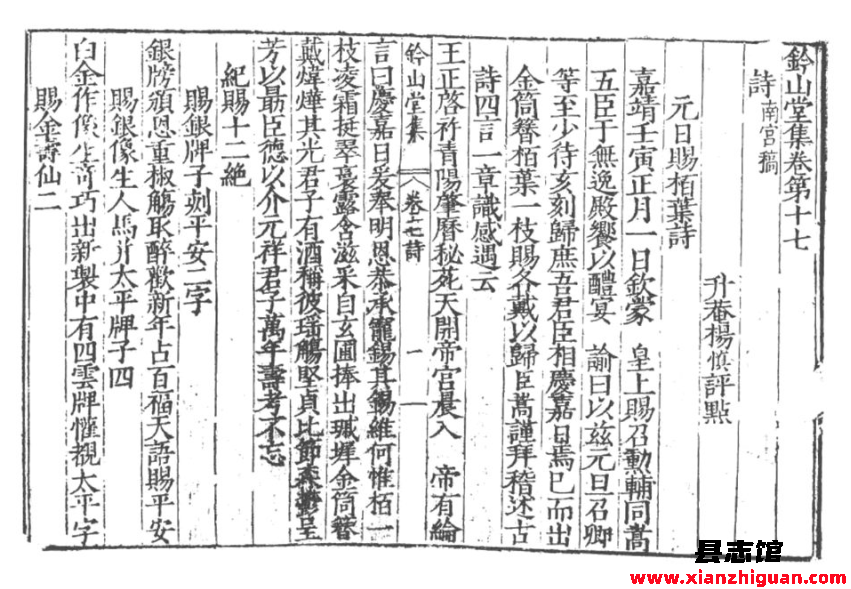 鈐山堂集卷第十七
詩 南宮稿
升菴楊慎評點
元日賜栢葉詩
嘉靖壬寅正月一日欽蒙 皇上賜召勳輔同嵩
五臣于無逸殿饗以醴宴 諭曰以兹元旦召卿
等至少待亥刻歸庶吾君臣相慶嘉日焉已而出
金筒簪栢葉一枝賜各戴以歸臣嵩謹拜稽述古
詩四言一章識感遇云
王正啓祚青陽肇曆秘苑天開帝宮晨入 帝有綸
鈐山堂集 卷十七詩 一
言曰慶嘉日爰奉明恩恭承寵錫其錫維何惟栢一
枝凌霜挺翠裛露含滋采自玄圃捧出瑊墀金筒簪
戴煒燁其光君子有酒稱彼瑶觴堅貞比節森鬱呈
芳以朂臣德以介元祥君子萬年壽考不忘
紀賜十二絶
賜銀牌子刻平安二字
銀牓頒恩重椒觴取醉歡新年占百福天語賜平安
賜銀像生人馬并太平牌子四
白金作像生奇巧出新製中有四雲牌懽覩太平字
賜金壽仙二
县志馆
www.xianzhiguan.com